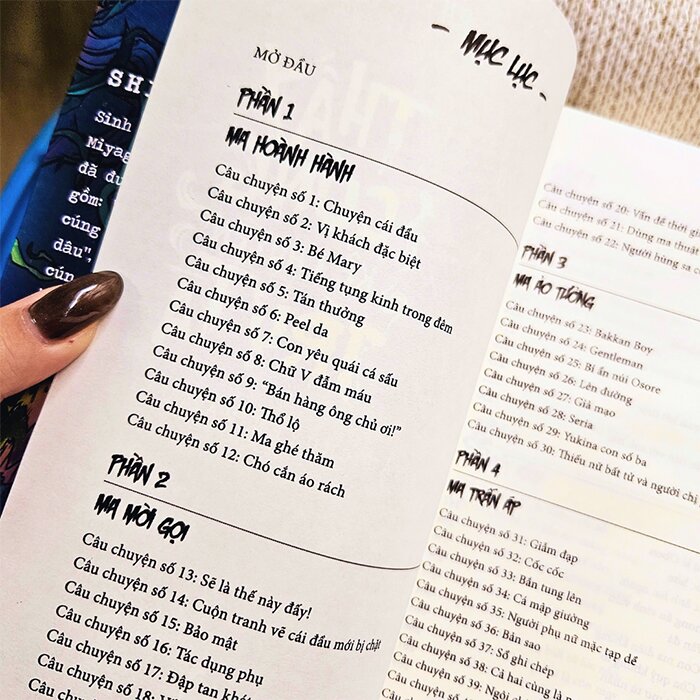 SH
Sinh
Miyag
đã đư
gồm:
cúng
dâu",
cún
MỤC LỤC
MỞ ĐẦU
PHẦN 1
MA HOÀNH HÀNH
Câu chuyện số 1: Chuyện cái đầu
Câu chuyện số 2: Vị khách đặc biệt
Câu chuyện số 3: Bé Mary
Câu chuyện số 4: Tiếng tụng kinh trong đêm
Câu chuyện số 5: Tán thưởng
Câu chuyện số 6: Peel da
Câu chuyện số 7: Con yêu quái cá sấu
Câu chuyện số 8: Chữ V đẫm máu
Câu chuyện số 9: “Bán hàng ông chủ ơi!”
Câu chuyện số 10: Thổ lộ
Câu chuyện số 11: Ma ghé thăm
Câu chuyện số 12: Chó cắn áo rách
PHẦN 2
MA MỜI GỌI
Câu chuyện số 13: Sẽ là thế này đấy!
Câu chuyện số 14: Cuộn tranh vẽ cái đầu mới bị chặt
Câu chuyện số 15: Bảo mật
Câu chuyện số 16: Tác dụng phụ
Câu chuyện số 17: Đập tan
Câu chuyện số 18:
Câu chuyện số 20: Vấn đề thời gi
Câu chuyện số 21: Dùng ma thuật
Câu chuyện số 22: Người hùng sa c
PHẦN 3
MA ẢO TƯỞNG
Câu chuyện số 23: Bakkan Boy
Câu chuyện số 24: Gentleman
Câu chuyện số 25: Bí ẩn núi Osore
Câu chuyện số 26: Lên đường
Câu chuyện số 27: Giả mạo
Câu chuyện số 28: Seria
Câu chuyện số 29: Yukina con số ba
Câu chuyện số 30: Thiếu nữ bất tử và người chị
PHẦN 4
MA TRẤN ÁP
Câu chuyện số 31: Giẫm đạp
Câu chuyện số 32: Cốc cốc
Câu chuyện số 33: Bắn tung lên
Câu chuyện số 34: Cá mập giường
Câu chuyện số 35: Người phụ nữ mặc tạp dề
Câu chuyện số 36: Bản sao
Câu chuyện số 37: Sổ ghi chép
Câu chuyện số 38: Cả hai cùng là
Câu chuyện số 39: